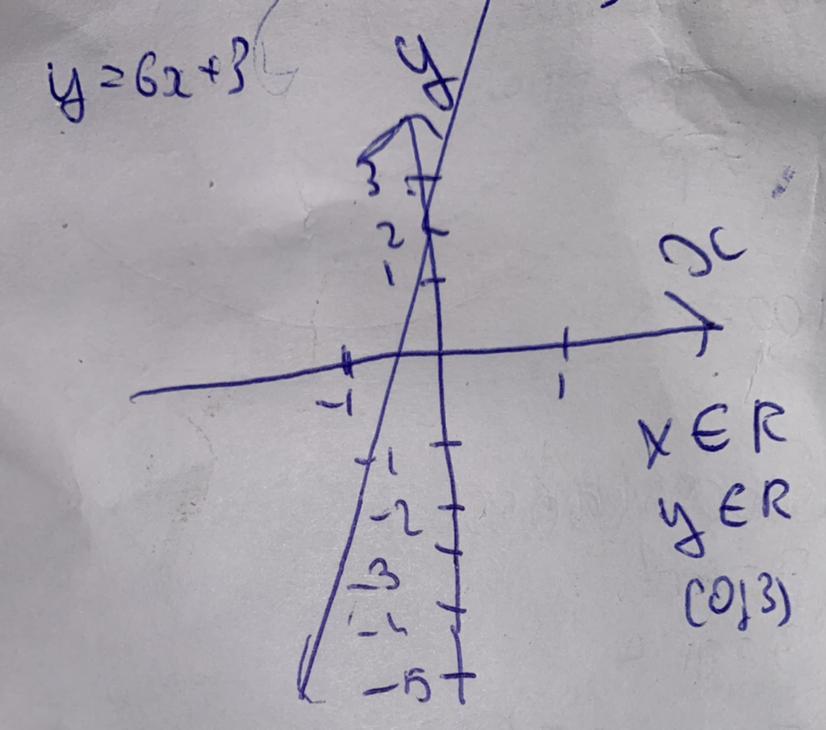 y = 6x + 3
y
3
2
1
x
-1
1
-1
-2
-3
-5
x ∈ R
y ∈ R
(0;3)